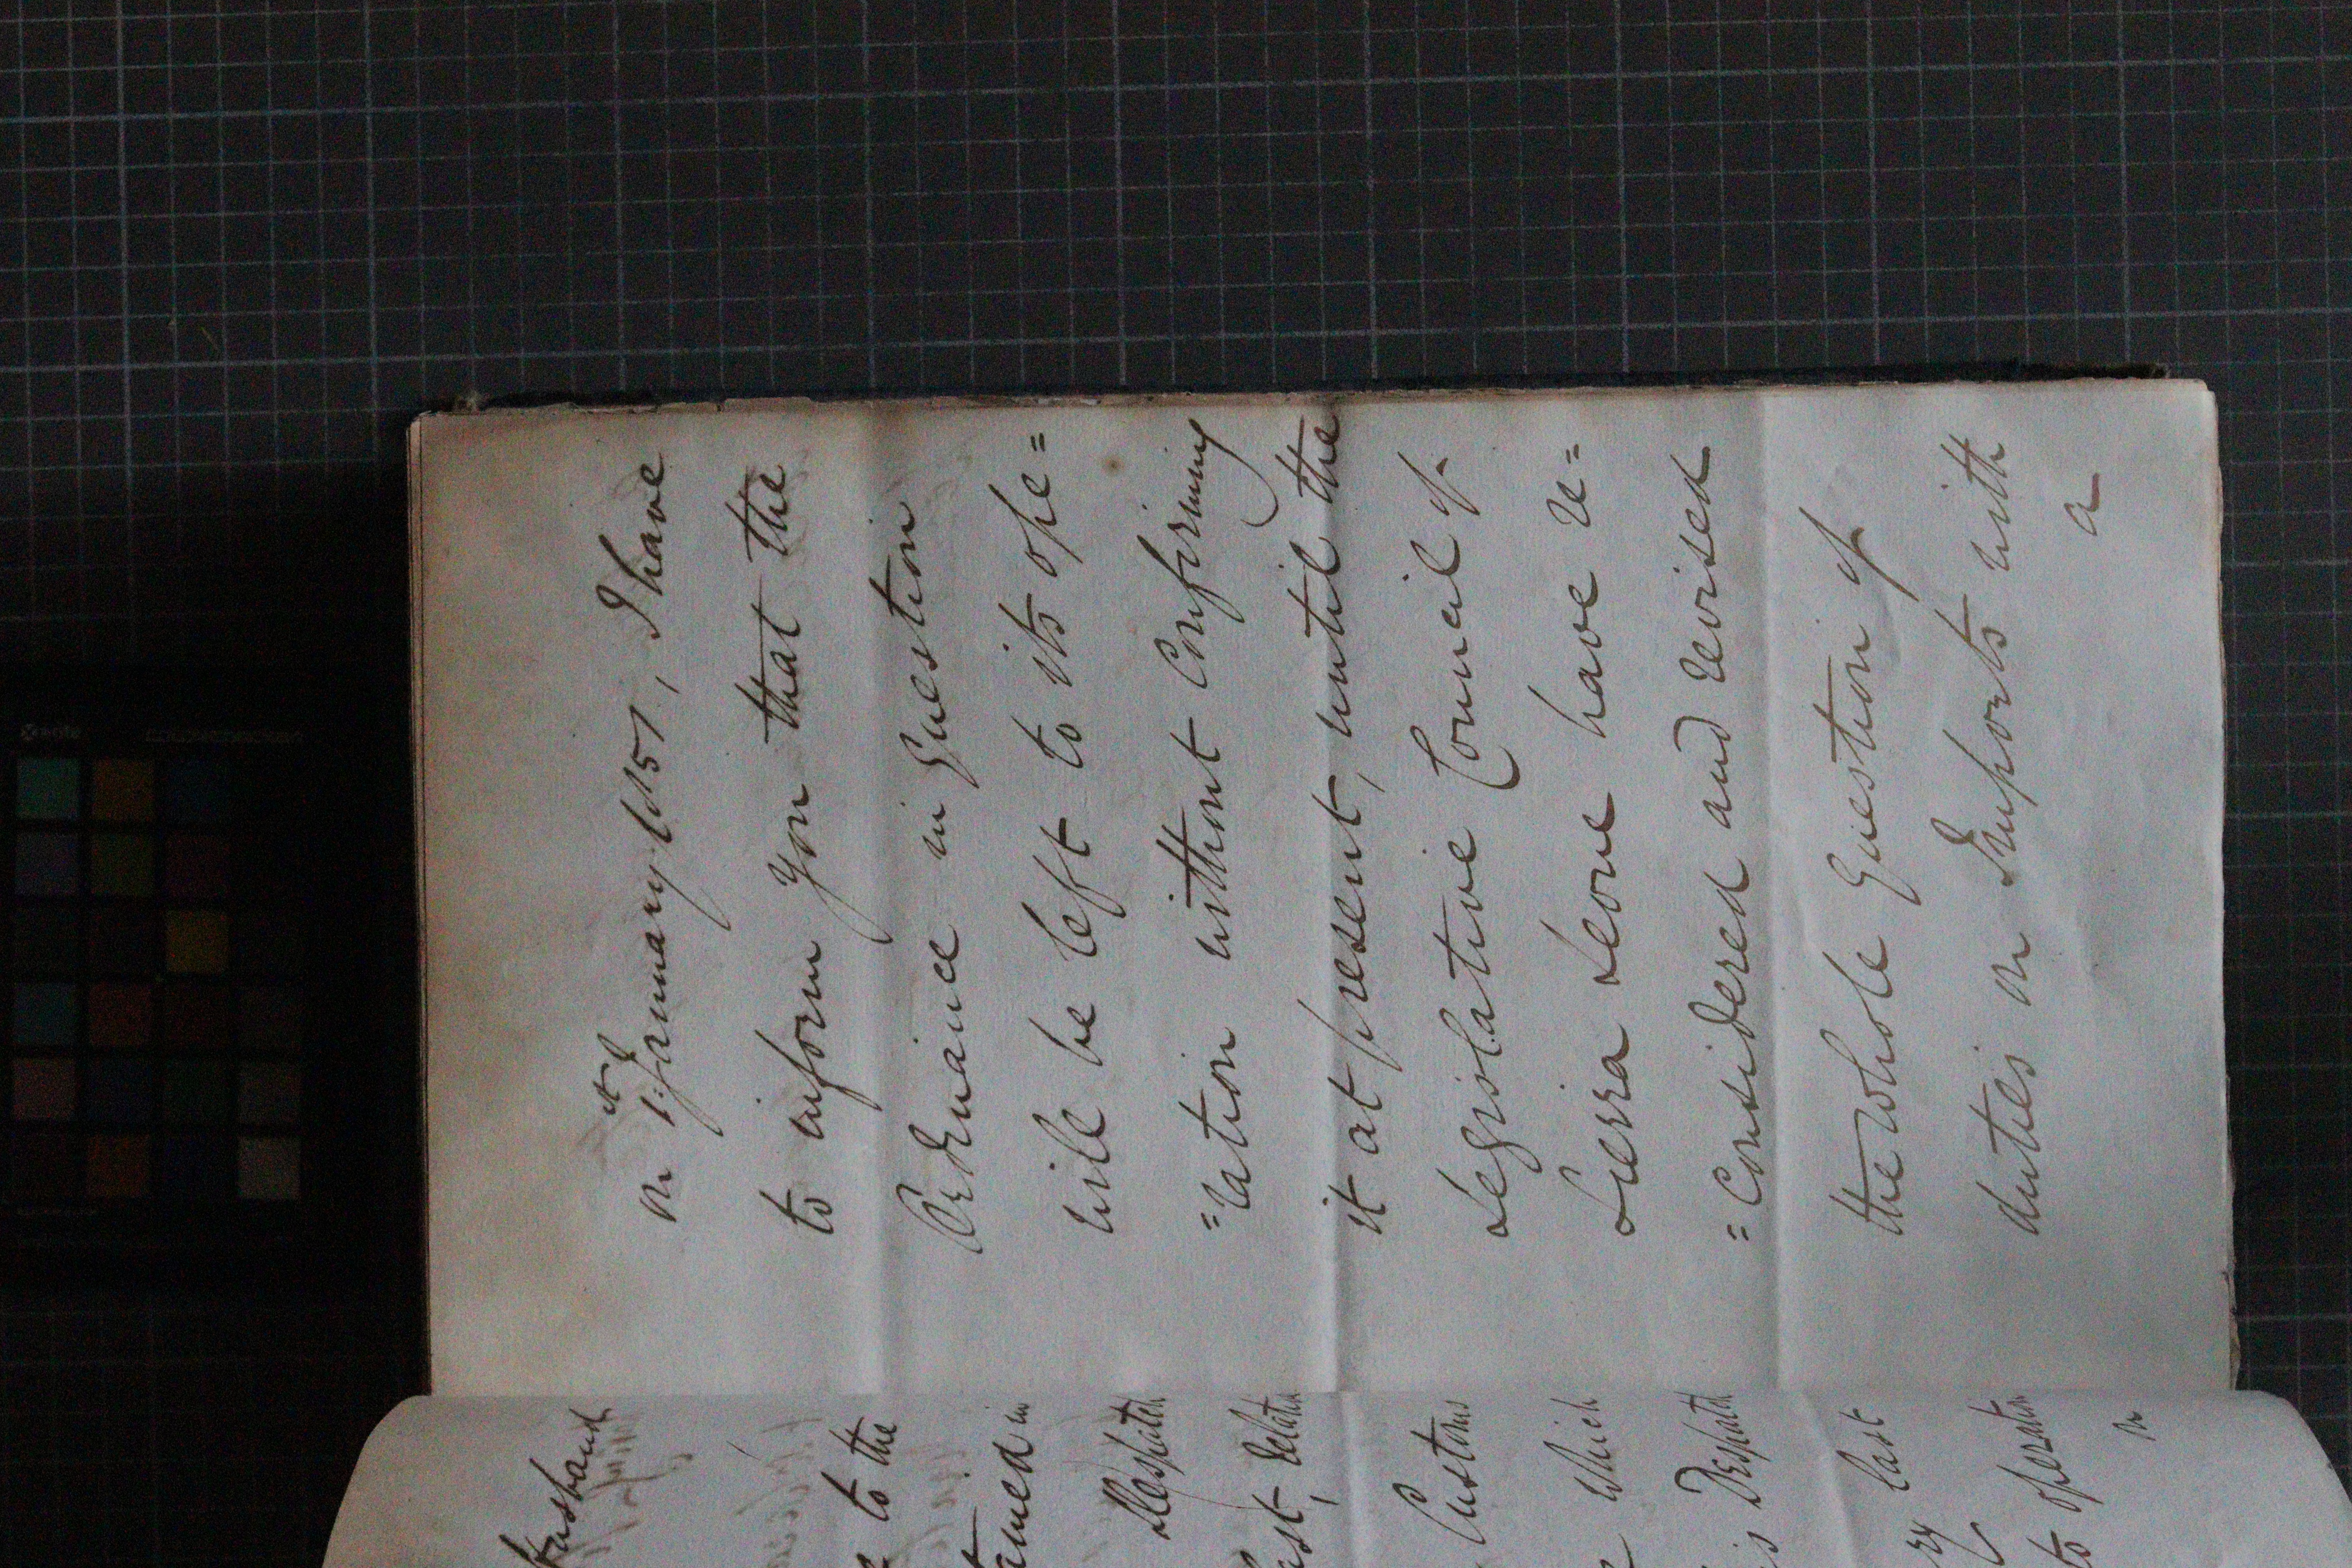 Husbant
to the
tained in
Despatch
ast, Relatin
Customs
which
is Despatch
last
to operation
on
on 1st January 1857, I have
to inform you that the
Ordinance in Question
will be left to its ope=
=ration without Confirming
it at present, until the
Legislative Council of
Sierra Leone have re=
=Considered and revised
the whole Question of
duties on Imports with
a